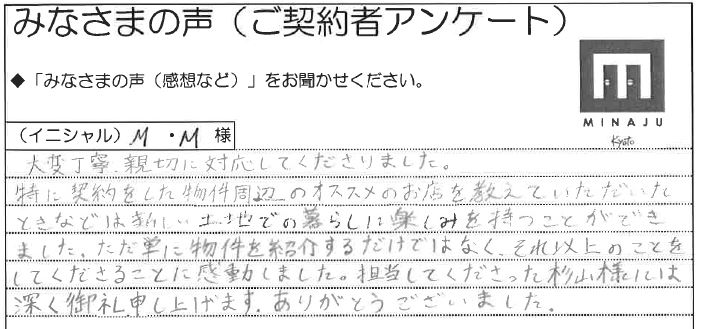 みなさまの声（ご契約者アンケート）
◆「みなさまの声（感想など）」をお聞かせください。
MINAJU
Kyoto
（イニシャル）M ・M 様
大変丁寧、親切に対応してくださりました。
特に契約をした物件周辺のオススメのお店を教えていただいた
ときなどは新しい土地での暮らしに楽しみを持つことができ
ました。ただ単に物件を紹介するだけではなく、それ以上のことを
してくださることに感動しました。担当してくださった杉山様には
深く御礼申し上げます。ありがとうございました。